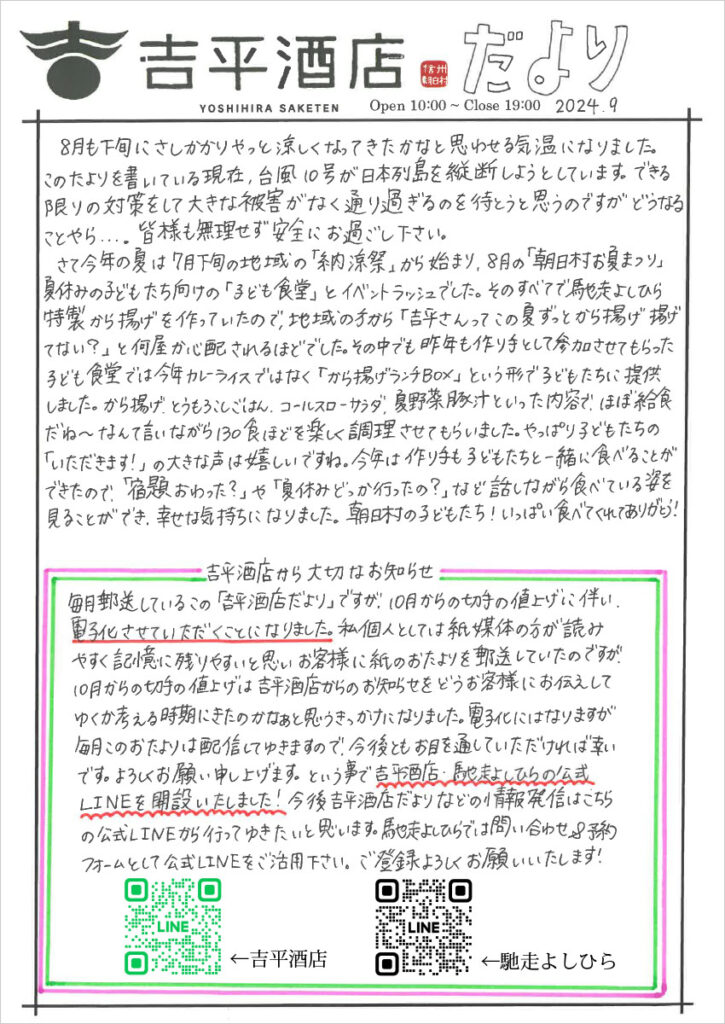 吉平酒店 信州朝日村 だより
YOSHIHIRA SAKETEN Open 10:00 ~ Close 19:00 2024.9
8月も下旬にさしかかりやっと涼しくなってきたかなと思わせる気温になりました。
このたよりを書いている現在、台風10号が日本列島を縦断しようとしています。できる
限りの対策をして大きな被害がなく通り過ぎるのを待とうと思うのですがどうなる
ことやら…。皆様も無理せず安全にお過ごし下さい。
さて今年の夏は7月下旬の地域の「納涼祭」から始まり、8月の「朝日村お夏まつり」
夏休みの子どもたち向けの「子ども食堂」とイベントラッシュでした。そのすべてで馳走よしひら
特製から揚げを作っていたので、地域の方から「吉平さんってこの夏ずっとから揚げ揚げ
てない?」と何屋か心配されるほどでした。その中でも昨年も作り手として参加させてもらった
子ども食堂では今年カレーライスではなく「から揚げランチBOX」という形で子どもたちに提供
しました。から揚げ、とうもろこしごはん、コールスローサラダ、夏野菜豚汁といった内容で、ほぼ給食
だね〜なんて言いながら130食ほどを楽しく調理させてもらいました。やっぱり子どもたちの
「いただきます!」の大きな声は嬉しいですね。今年は作り手も子どもたちと一緒に食べることが
できたので、「宿題おわった?」や「夏休みどっか行ったの?」など話しながら食べている姿を
見ることができ、幸せな気持ちになりました。朝日村の子どもたち!いっぱい食べてくれてありがとう!
吉平酒店から大切なお知らせ
毎月郵送しているこの「吉平酒店だより」ですが、10月からの切手の値上げに伴い、
電子化させていただくことになりました。私個人としては紙媒体の方が読み
やすく記憶に残りやすいと思いお客様に紙のおたよりを郵送していたのですが、
10月からの切手の値上げは吉平酒店からのお知らせをどうお客様にお伝えして
ゆくか考える時期にきたのかなぁと思うきっかけになりました。電子化にはなりますが
毎月このおたよりは配信してゆきますので、今後ともお目を通していただければ幸い
です。よろしくお願い申し上げます。という事で吉平酒店・馳走よしひらの公式
LINEを開設いたしました!今後吉平酒店だよりなどの情報発信はこちら
の公式LINEから行ってゆきたいと思います。馳走よしひらでは問い合わせ&予約
フォームとして公式LINEをご活用下さい。ご登録よろしくお願いいたします!
LINE ←吉平酒店 LINE ←馳走よしひら